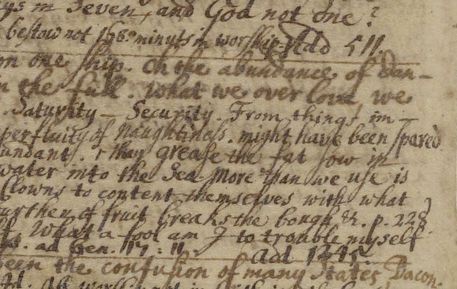 ys in Seven, and God not one?
bestow not 168 minuts in worship. Add 511.
on one ship. Oh the abundance of dan-
n the full. What we over love, we
Saturity – Security. From things im-
perfluity of naughtiness. might have been spared
undant. & they grease the fat sow in
water into the Sea. More than we use is
Clowns to content themselves with what
urthen of fruit breaks the bough &c. p. 228
What a fool am I to trouble myself
ad Gen. 17: 11. add 1415
been the confusion of many States. Bacon.